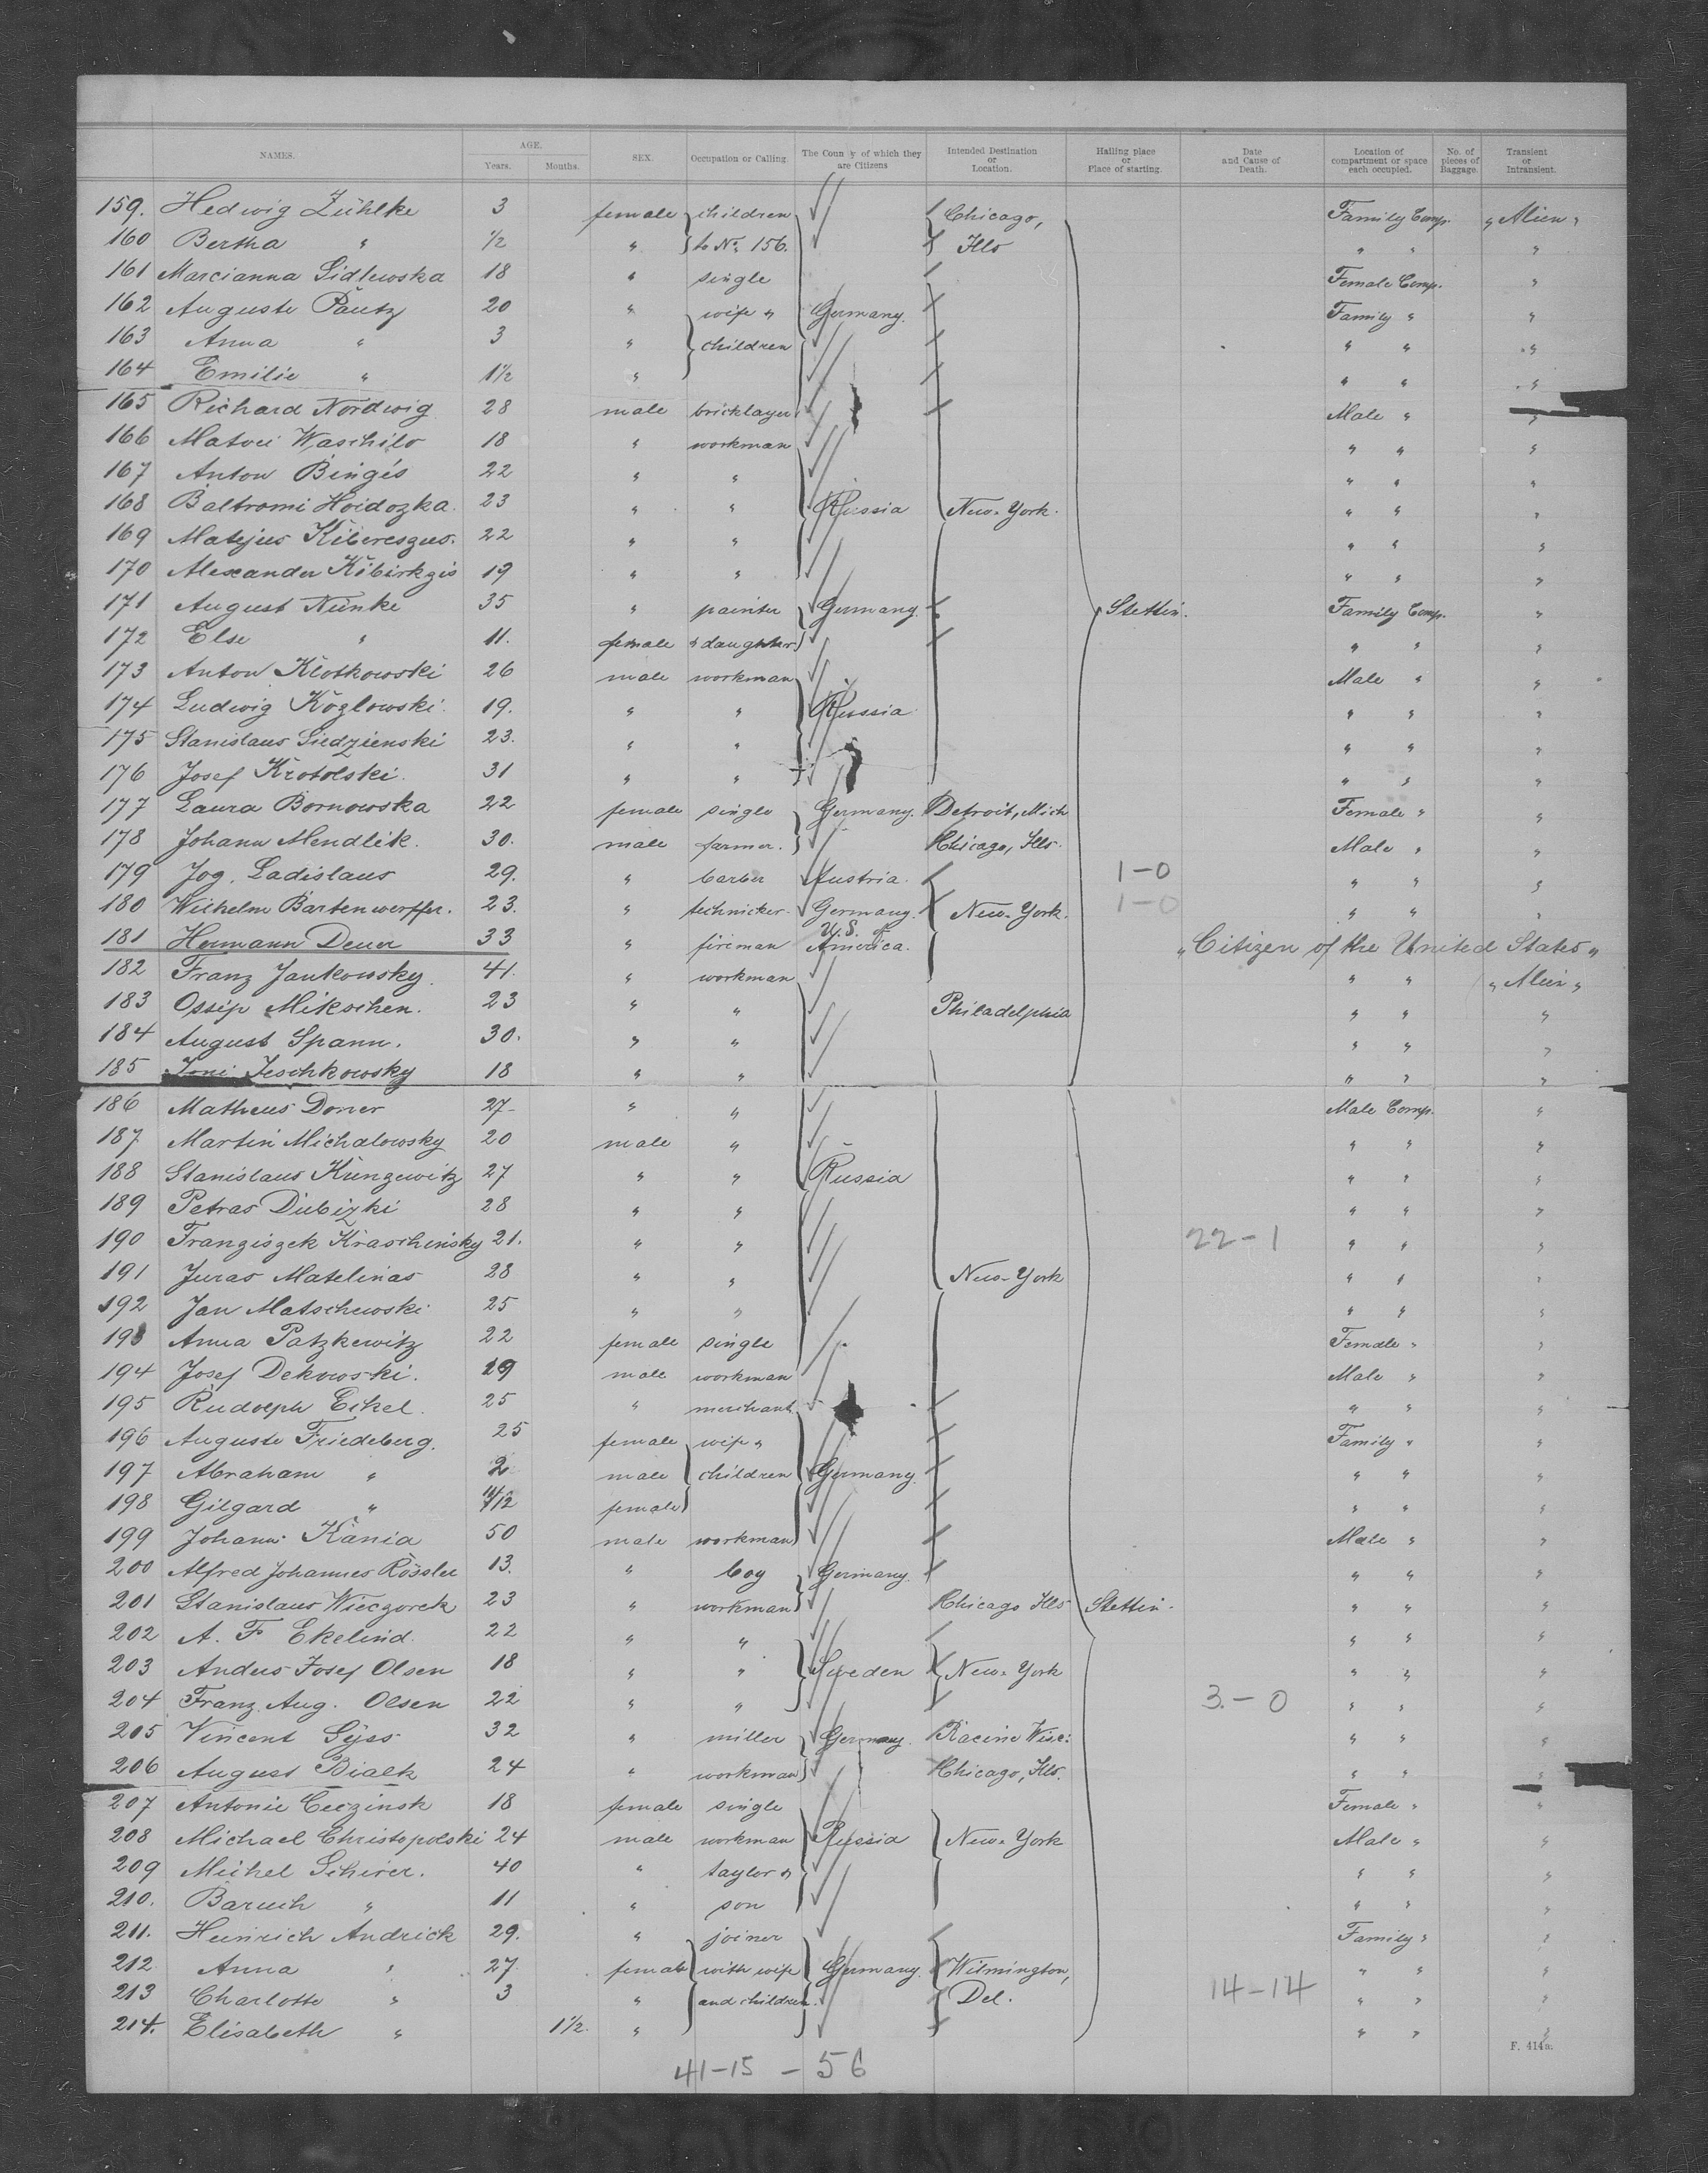 NAMES. AGE. Years. Months. SEX. Occupation or Calling. The Coun y of which they are Citizens Intended Destination or Location. Hailing place or Place of starting. Date and Cause of Death. Location of compartment or space each occupied. No. of pieces of Baggage. Transient or Intransient.
159. Hedwig Zühlke 3 female children Chicago, Family Comp. "Alien"
160 Bertha " ½ " to No. 156. Ills " " "
161 Marcianna Sidlewska 18 " single Female Comp. "
162 Auguste Pautz 20 " wife " Germany. Family " "
163 Anna " 3 " children " " "
164 Emilie " 1½ " " " "
165 Richard Nordwig 28 male bricklayer Male " "
166 Waschilo 18 " workman " " "
167 Anton Bingés 22 " " " " "
168 Baltromi Hoidozka. 23 " " Russia New-York. " " "
169 Matejus 22 " " " " "
170 Alexander Kibirkzis 19 " " " " "
171 August Nünke 35 " painter Germany. Stettin. Family Comp. "
172 Else " 11. female " daughter " " "
173 Anton Klotkowski 26 male workman Male " "
174 Ludwig Kozlowski. 19. " " Russia " " "
175 Stanislaus Siedzienski 23. " " " " "
176 Josef Krotolski. 31 " " " " "
177 Laura Bornowska 22 female single Germany. Detroit, Mich Female " "
178 Johann Mendlik. 30. male farmer. Chicago, Ills. Male " "
179 Jog. Ladislaus 29. " barber Austria. 1-0 " " "
180 Wilhelm Bartenwerffer. 23. " technicker. Germany. New-York. 1-0 " " "
181 Hermann Deuer 33 " fireman U.S. of America. "Citizen of the United States"
182 Franz Jankowsky. 41. " workman " " "Alien"
183 Ossip Mikochen. 23 " " Philadelphia " " "
184 August Spann. 30. " " " " "
185 Jeschkowsky 18 " " " " "
186 Matheus Dorrer 27- " " Male Comp. "
187 Martin Michalowsky 20 male " " " "
188 Stanislaus Kungewitz 27 " " Russia " " "
189 Petras Dubizki 28 " " " " "
190 Franziszek Kraschinsky 21. " " 22-1 " " "
191 Juras Matelinas 28 " " New-York " " "
192 Jan Matschewski 25 " " " " "
193 Anna Patzkewitz 22 female single Female " "
194 Josef Dekowski. 29 male workman Male " "
195 Rudolph Eikel. 25 " merchant " " "
196 Auguste Friedeberg. 25 female wife " Family " "
197 Abraham " 2 male children Germany. " " "
198 Gilgard " 11/12 female " " "
199 Johann Kania 50 male workman Male " "
200 Alfred Johannes Rössler 13. " boy Germany. " " "
201 Stanislaus Wieczorek 23 " workman Chicago Ills Stettin. " " "
202 A. F. Ekelind. 22 " " " " "
203 Anders Josef Olsen 18 " " Sweden New-York " " "
204 Franz Aug. Olsen 22 " " 3.-0 " " "
205 Vincent Gyss 32 " miller Germany. Racine Wisc: " " "
206 August Bialk 24 " workman Chicago, Ills. " " "
207 Antonie Ceczinsk 18 female single Female " "
208 Michael Christopolski 24 male workman Russia New-York Male " "
209 Michel Schirer. 40 " taylor " " " "
210. Baruch " 11 " son " " "
211. Heinrich Andrick 29. " joiner Family " "
212. Anna " 27. female with wife Germany. Wilmington, " " "
213 Charlotte " 3 " and children. Del. 14-14 " " "
214. Elisabeth " 1½. " " " "
F. 414a.
41-15 - 56